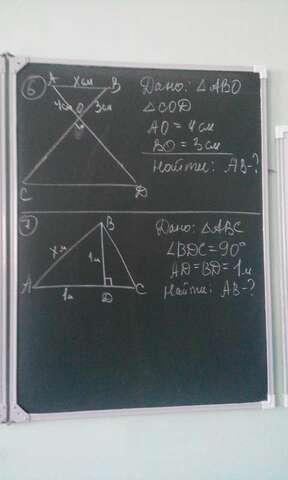 6
A x см B
4 см O 3 см
C D
Дано: △ABO
△COD
AO = 4 см
BO = 3 см
Найти: AB-?
7
B
x м 1 м
A 1 м D C
Дано: △ABC
∠BDC = 90°
AD = BD = 1 м
Найти: AB-?